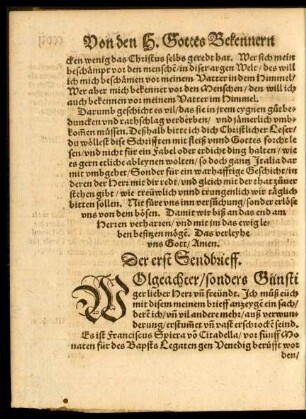 Von den H. Gottes Bekennern
cken wenig das Christus selbs geredt hat. Wer sich mein
beschämpt vor den menschē/in diser argen Welt/des will
ich mich beschämen vor meinem Vatter in dem Himmel/
Wer aber mich bekennet vor den Menschen/den will ich
auch bekennen vor meinem Vatter im Himmel.
Darumb geschicht es vil/das sie in jrem eygnen gůtbe-
duncken vnd rathschlag verderben/ vnd jämerlich vmb
kom̄en müssen. Deßhalb bitte ich dich Christlicher Leser/
du wöllest dise Schrifften mit fleiß vnnd Gottes forcht le
sen/vnd nicht für ein Fabel oder erdichte ding halten/ wie
es gern etliche ableynen wolten/so doch gantz Italia dar
mit vmbgehet/Sonder für ein warhafftige Geschicht/in
deren der Herr mit dir redt/vnd gleich mit der that zůuer
stehen gibt/ wie trewlich vnnd trungenlich wir täglich
bitten sollen. Nit füre vns inn versůchung/sonder erlöse
vns von dem bösen. Damit wir biß an das end am
Herren verharren/vnd mit jm das ewig le
ben besitzen mögē. Das verleyhe
vns Gott/Amen.
Der erst Sendbrieff.
WOlgeachter/sonders Günsti
ger lieber Herr vn̄ freündt. Ich můß euch
mit disem meinem brieff anzeygē ein sach/
derē ich/vn̄ vil andere mehr/auß verwun-
derung/erstum̄et vn̄ vast erschrockē seind.
Es ist Franciscus Spiera vō Citadella/vor fünff Mo
naten für des Bapsts Legaten gen Venedig berüfft wor
den/